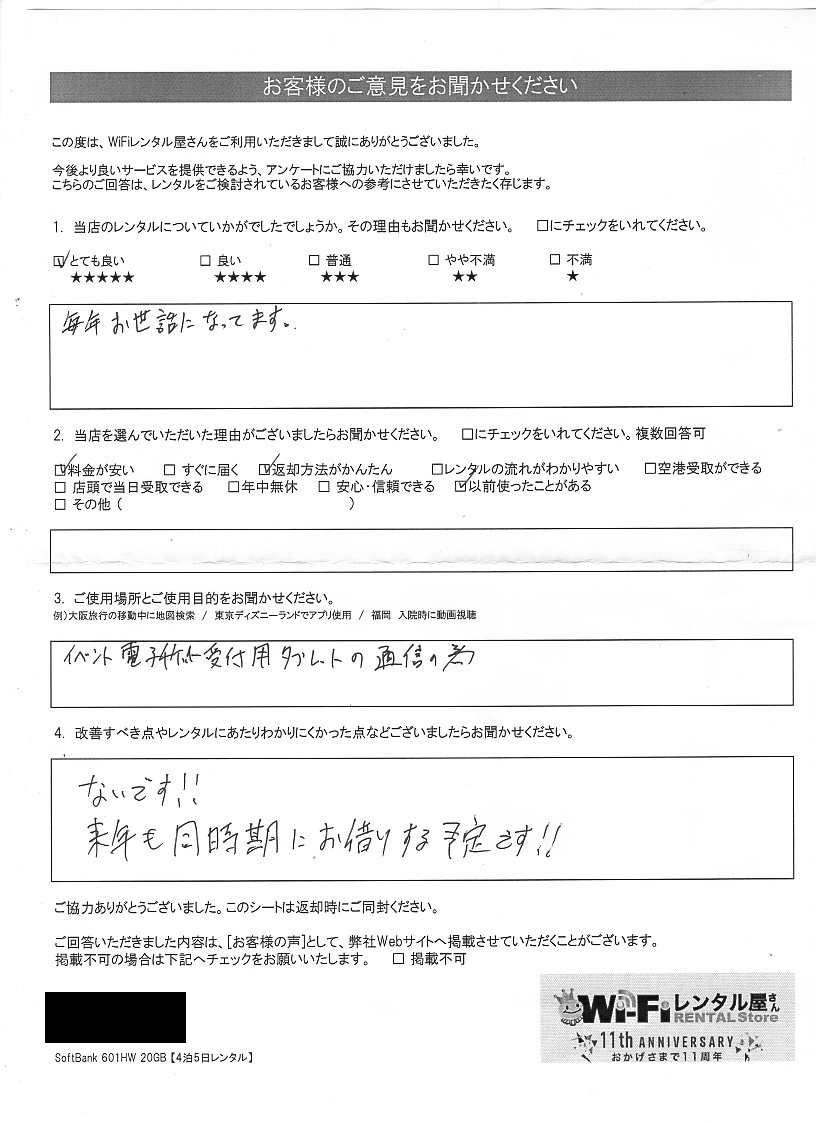 お客様のご意見をお聞かせください
この度は、WiFiレンタル屋さんをご利用いただきまして誠にありがとうございました。
今後より良いサービスを提供できるよう、アンケートにご協力いただけましたら幸いです。
こちらのご回答は、レンタルをご検討されているお客様への参考にさせていただきたく存じます。
1. 当店のレンタルについていかがでしたでしょうか。その理由もお聞かせください。 □にチェックをいれてください。
☑とても良い □ 良い □ 普通 □ やや不満 □ 不満
★★★★★ ★★★★ ★★★ ★★ ★
毎年お世話になってます。
2. 当店を選んでいただいた理由がございましたらお聞かせください。 □にチェックをいれてください。複数回答可
☑料金が安い □ すぐに届く ☑返却方法がかんたん □レンタルの流れがわかりやすい □空港受取ができる
□ 店頭で当日受取できる □年中無休 □ 安心・信頼できる ☑以前使ったことがある
□ その他 ( )
3. ご使用場所とご使用目的をお聞かせください。
例)大阪旅行の移動中に地図検索 / 東京ディズニーランドでアプリ使用 / 福岡 入院時に動画視聴
イベント電子チケット受付用タブレットの通信の為
4. 改善すべき点やレンタルにあたりわかりにくかった点などございましたらお聞かせください。
ないです!!
来年も同時期にお借りする予定です!!
ご協力ありがとうございました。このシートは返却時にご同封ください。
ご回答いただきました内容は、[お客様の声]として、弊社Webサイトへ掲載させていただくことがございます。
掲載不可の場合は下記へチェックをお願いいたします。 □ 掲載不可
Wi-Fiレンタル屋さん
RENTAL Store
11th ANNIVERSARY
おかげさまで11周年
SoftBank 601HW 20GB【4泊5日レンタル】